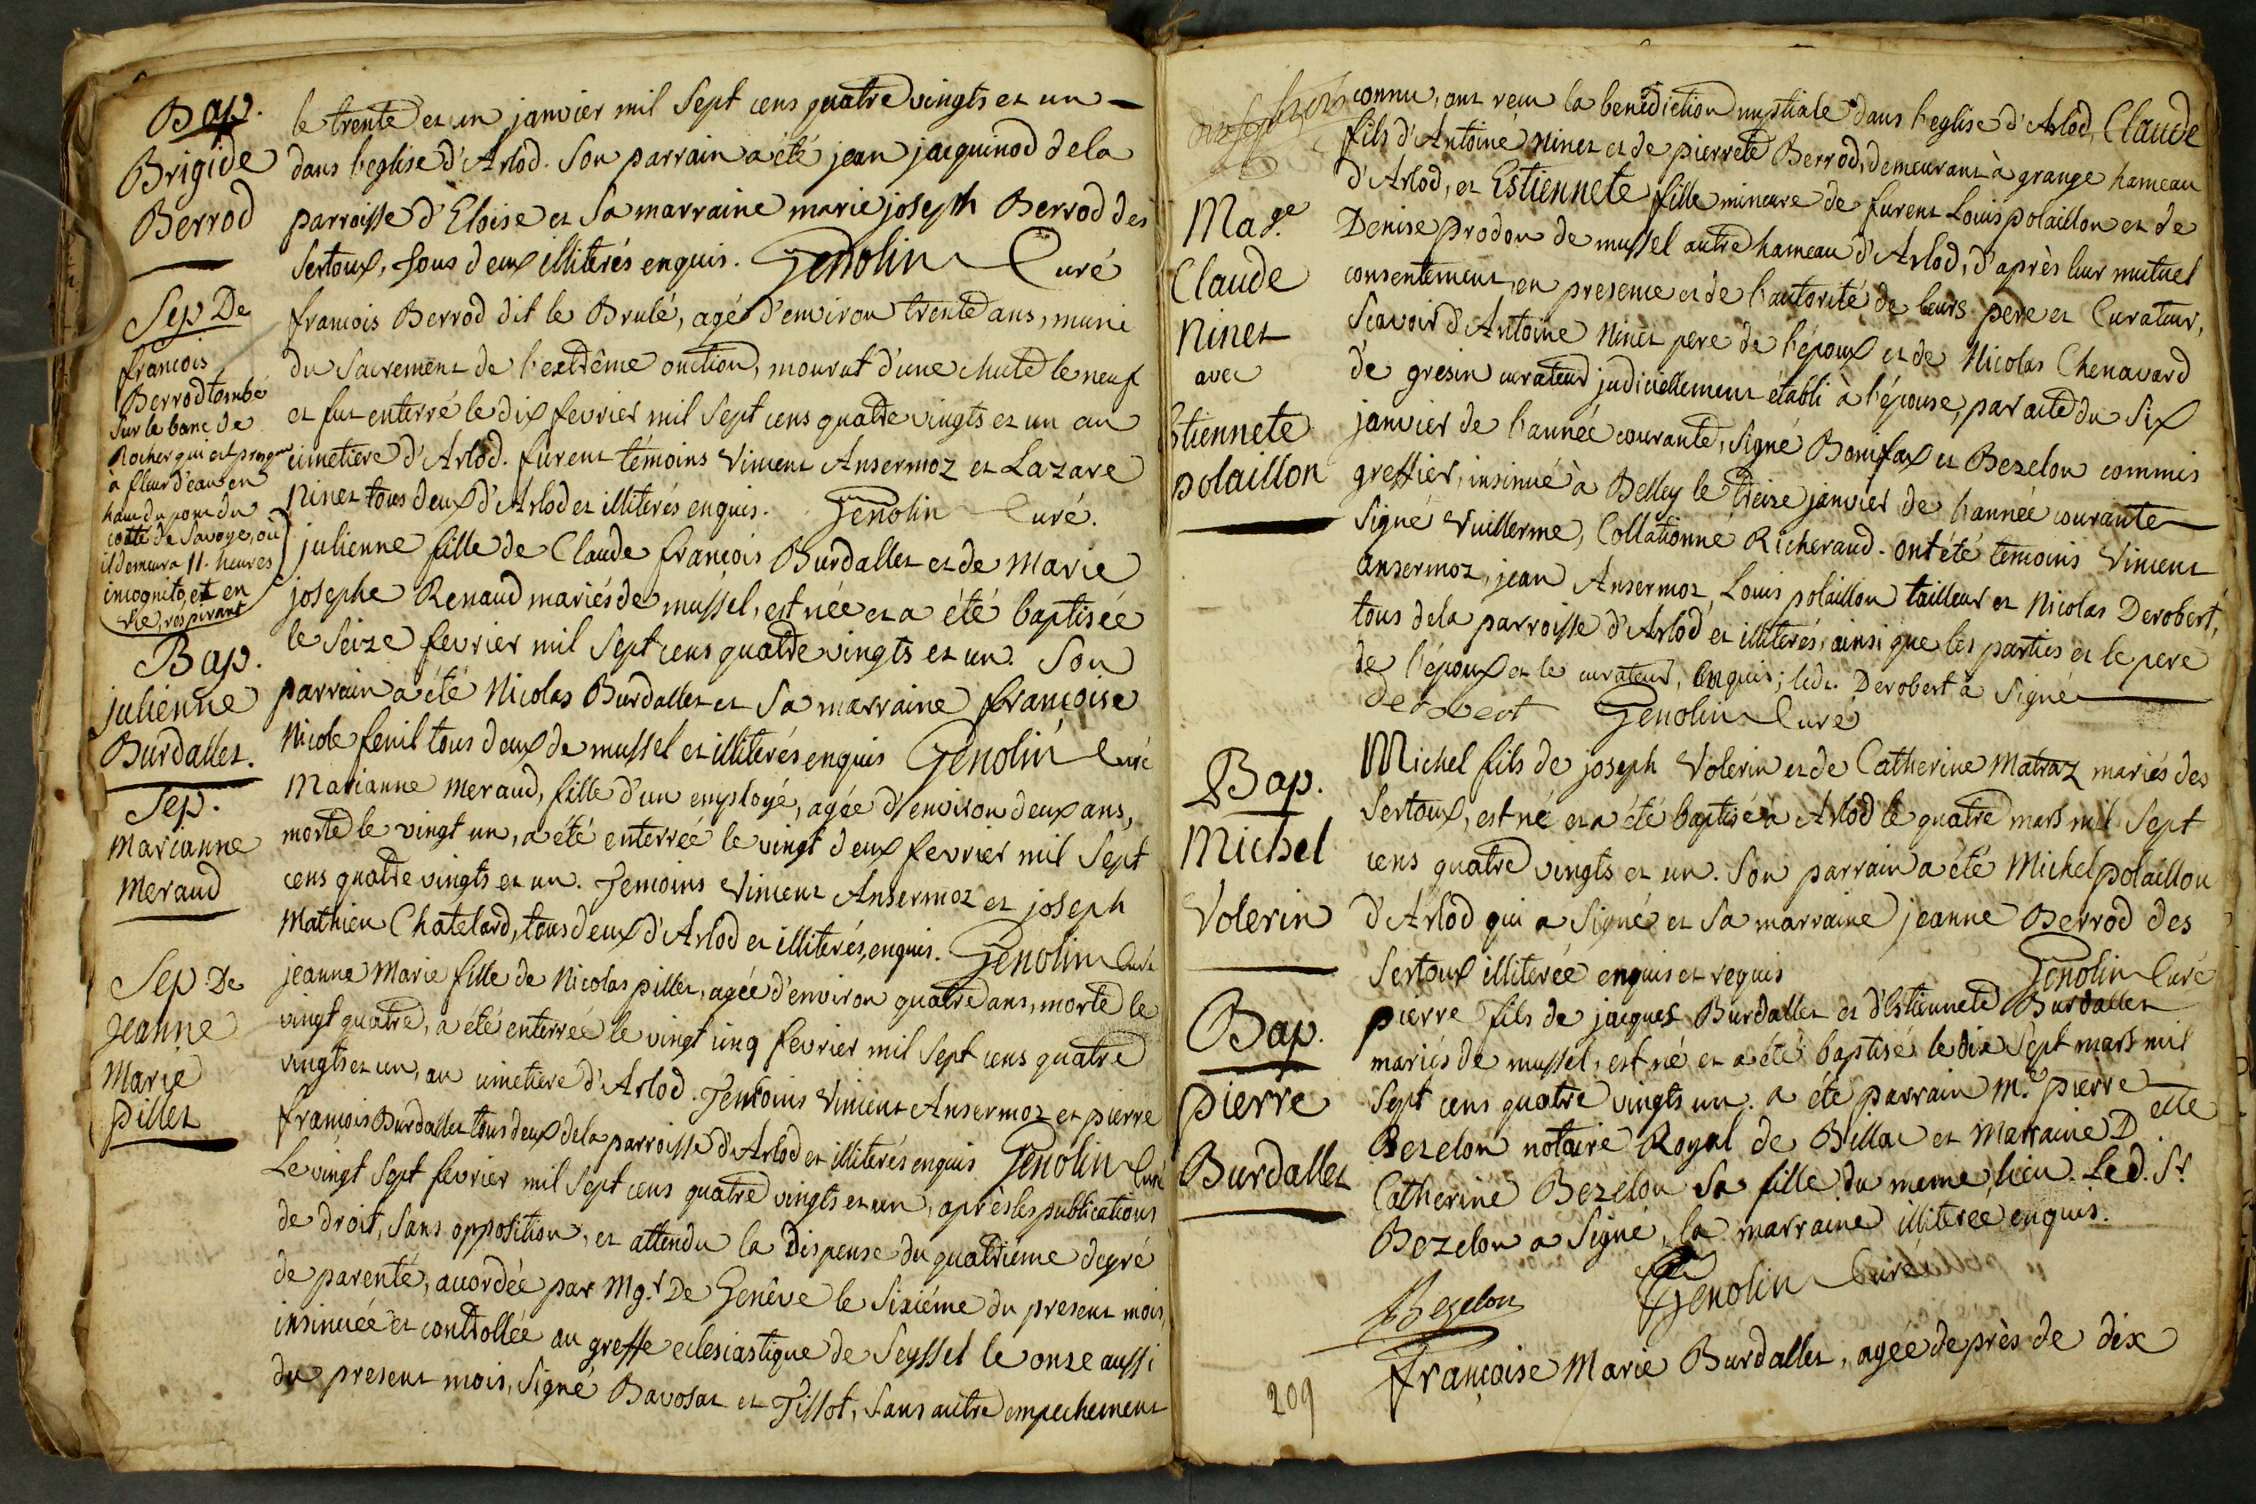 Bap.
Brigide
Berrod
le trente et un janvier mil Sept cens quatre vingts et un
dans l'eglise d'Arlod. Son parrain a été jean jacquinod dela
parroisse d'Eloise et Sa marraine marie joseph Berrod des
Sertoux, tous deux illiterés enquis. Genolin Curé
Sep. De
francois
Berrod tombé
Sur le banc de
Rocher qui est presque
à fleur d'eau en
haut du pont du
coté de Savoye, où
il demeura 11. heures
incognito, et en
vie, respirant
francois Berrod dit le Brulé, agé d'environ trente ans, muni
du Sacrement de l'extrême onction, mourut d'une chute le neuf
et fut enterré le dix fevrier mil Sept cens quatre vingts et un au
cimetiere d'Arlod. furent témoins Vincent Ansermoz et Lazare
Ninet tous deux d'Arlod et illiterés enquis. Genolin Curé.
Bap.
julienne
Burdallet.
julienne fille de Claude francois Burdallet et de Marie
josephe Renaud mariés de mussel, est née et a été baptisée
le Seize fevrier mil Sept cens quatre vingts et un. Son
parrain a été Nicolas Burdallet et Sa marraine françoise
Nicole fenil tous deux de mussel et illiterés enquis Genolin Curé
Sep.
Marianne
Meraud
Marianne Meraud, fille d'un employé, agée d'environ deux ans,
morte le vingt un, a été enterrée le vingt deux fevrier mil Sept
cens quatre vingts et un. Temoins Vincent Ansermoz et joseph
Mathieu Châtelard, tous deux d'Arlod et illiterés, enquis. Genolin Curé
Sep. De
Jeanne
Marie
Pillet
jeanne Marie fille de Nicolas pillet, agée d'environ quatre ans, morte le
vingt quatre, a été enterrée le vingt cinq fevrier mil Sept cens quatre
vingts et un, au cimetiere d'Arlod. Temoins Vincent Ansermoz et pierre
francois Burdallet tous deux dela parroisse d'Arlod et illiterés enquis Genolin Curé
Le vingt Sept fevrier mil Sept cens quatre vingts et un, après les publications
de droit, Sans opposition, et attendu la Dispense du quatrieme degré
de parenté, accordée par Mgr. De Genêve le Sixiéme du present mois,
insinuée et controllée au greffe eclesiastique de Seyssel le onze aussi
du present mois, Signé Bavosat et Tissot, Sans autre empechement
connu, ont reçu la benediction nuptiale dans l'eglise d'Arlod, Claude
Mage.
Claude
Ninet
avec
Estiennete
polaillon
fils d'Antoine Ninet et de pierrete Berrod, demeurant à grange hameau
d'Arlod, et Estiennete fille mineure de furent Louis polaillon et de
Denise prodon de mussel autre hameau d'Arlod, d'après leur mutuel
consentement, en presence et de l'autorité de leurs pere et Curateur,
Scavoir d'Antoine Ninet pere de l'époux et de Nicolas Chenavard
de gresin curateur judiciellement établi à l'épouse, par acte du Six
janvier de l'année courante, Signé Bonifax et Bezelon commis
greffier, insinué à Belley le treize janvier de l'année courante
Signé Vuillerme, Collationné Richeraud. Ont été temoins Vincent
Ansermoz, jean Ansermoz, Louis polaillon tailleur et Nicolas Derobert,
tous dela parroisse d'Arlod et illiterés, ainsi que les parties et le pere
de l'époux et le curateur, enquis; ledt. Derobert a Signé
derobert Genolin Curé
Bap.
Michel
Volerin
Michel fils de joseph Volerin et de Catherine Matraz mariés des
Sertoux, est né et a été baptisé à Arlod le quatre mars mil Sept
cens quatre vingts et un. Son parrain a été Michel polaillon
d'Arlod qui a Signé et Sa marraine jeanne Berrod des
Sertoux illiterée enquis et requis Genolin Curé
Bap.
pierre
Burdallet
pierre fils de jacques Burdallet et d'Estiennete Burdallet
mariés de mussel, est né et a été baptisé le dix Sept mars mil
Sept cens quatre vingts un. a été parrain M.e pierre
Bezelon notaire Royal de Billa et Marraine Delle
Catherine Bezelon Sa fille du meme lieu. Led. Sr.
Bezelon a Signé, la marraine illiterée enquis.
Bezelon Genolin Curé
françoise Marie Burdallet, agée de près de dix
209